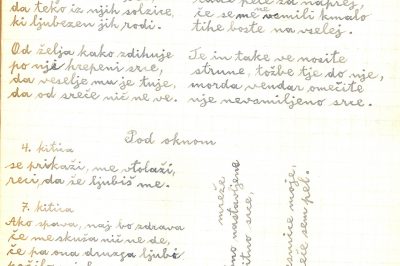 da teko iz njih solzice,
ki ljubezen jih rodi.
Od želja kako zdihuje
po nji hrepeni srce,
da veselje mu je tuje,
da od sreče nič ne ve.
če se mé vsmili kmalo
tihe boste na vselej.
Te in take ve nosite
strune, tožbe tje do nje,
morda vendar omečite
nje nevsmiljeno srce.
Pod oknom
4. kitica
se prikaži, me vtolaži,
reci, da že ljubiš me.
7. kitica
Ako spava, naj bo zdrava
če me skuša nič ne de,
če pa ona druzga ljubi
mreže
nastavljene
srce,
moje,
sem pel.